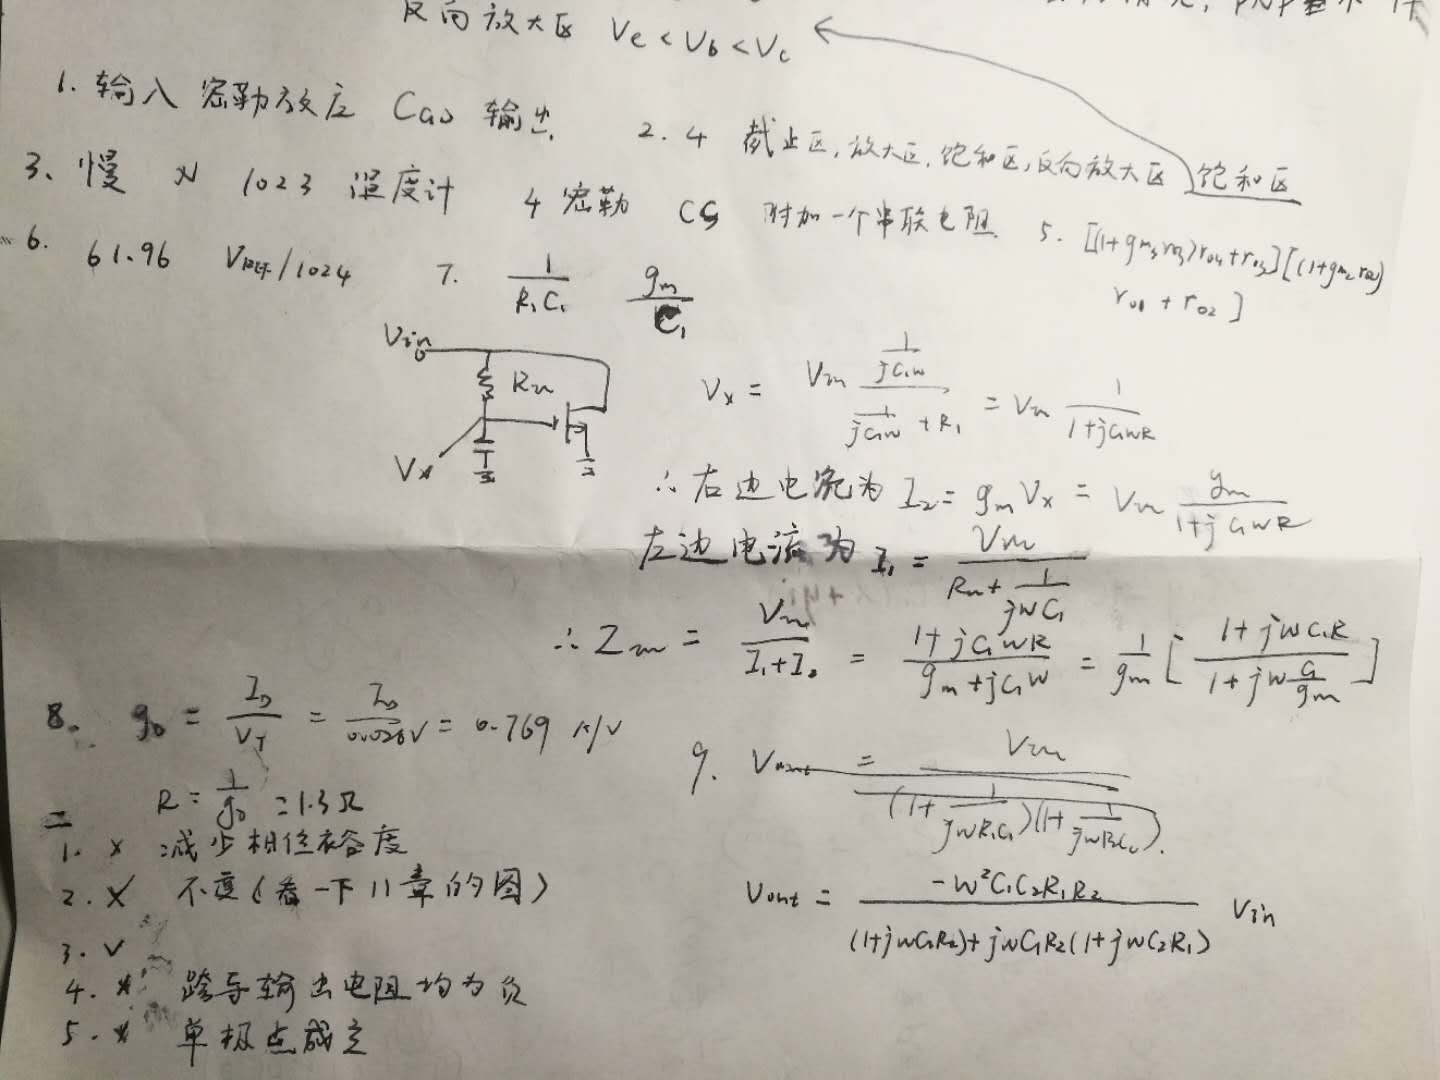 反向放大区 Ve < Vb < Vc
1. 输入 密勒效应 CGD 输出
2. 4 截止区, 放大区, 饱和区, 反向放大区 饱和区
3. 慢 N 1023 温度计
4 密勒 CG 附加一个串联电阻
5. [(1+gm3ro3)ro4+ro3][(1+gm2ro2)
ro1 + ro2]
6. 61.96 VREF/1024
7. 1/(R1C1) gm/C1
Vin
Rin
Vx
Vx = Vin (1/(jC1w))/(1/(jC1w) + R1) = Vin 1/(1+jC1wR)
∴ 右边电流为 I2 = gmVx = Vin gm/(1+jC1wR)
左边电流为 I1 = Vin/(Rin + 1/(jwC1))
∴ Zin = Vin/(I1+I2) = (1+jC1wR)/(gm+jC1w) = 1/gm [(1+jwC1R)/(1+jw C1/gm)]
8. gD = ID/VT = ID/0.026V = 0.769 A/V
R = 1/gD = 1.3Ω
9. Vout = Vin/((1+1/(jwR1C1))(1+1/(jwR2C2)).
Vout = -w²C1C2R1R2/((1+jwC1R2)+jwC1R2(1+jwC2R1)) Vin
二
1. × 减少相位裕度
2. × 不变(看一下11章的图)
3. ✓
4. × 跨导输出电阻均为负
5. × 单极点成立